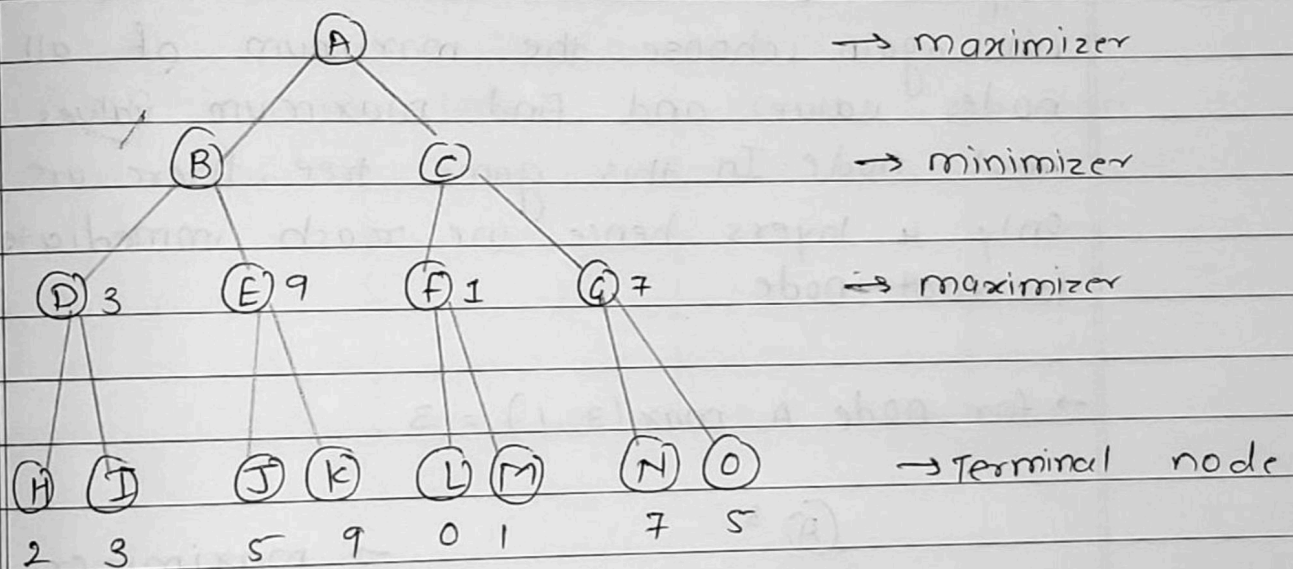 A → maximizer
B C → minimizer
D 3 E 9 F 1 G 7 → maximizer
H I J K L M N O → Terminal node
2 3 5 9 0 1 7 5